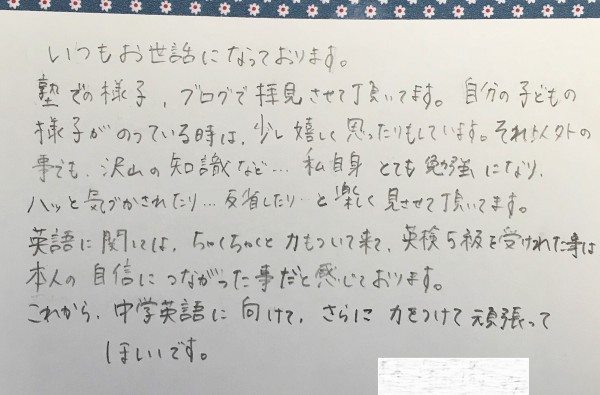 いつもお世話になっております。
塾での様子、ブログで拝見させて頂いてます。自分の子どもの
様子がのっている時は、少し嬉しく思ったりもしています。それ以外の
事でも、沢山の知識など…私自身とても勉強になり、
ハッと気づかされたり…反省したり…と楽しく見させて頂いてます。
英語に関しては、ちゃくちゃくと力もついて来て、英検5級を受けれた事は
本人の自信につながった事だと感じております。
これから、中学英語に向けて、さらに力をつけて頑張って
ほしいです。